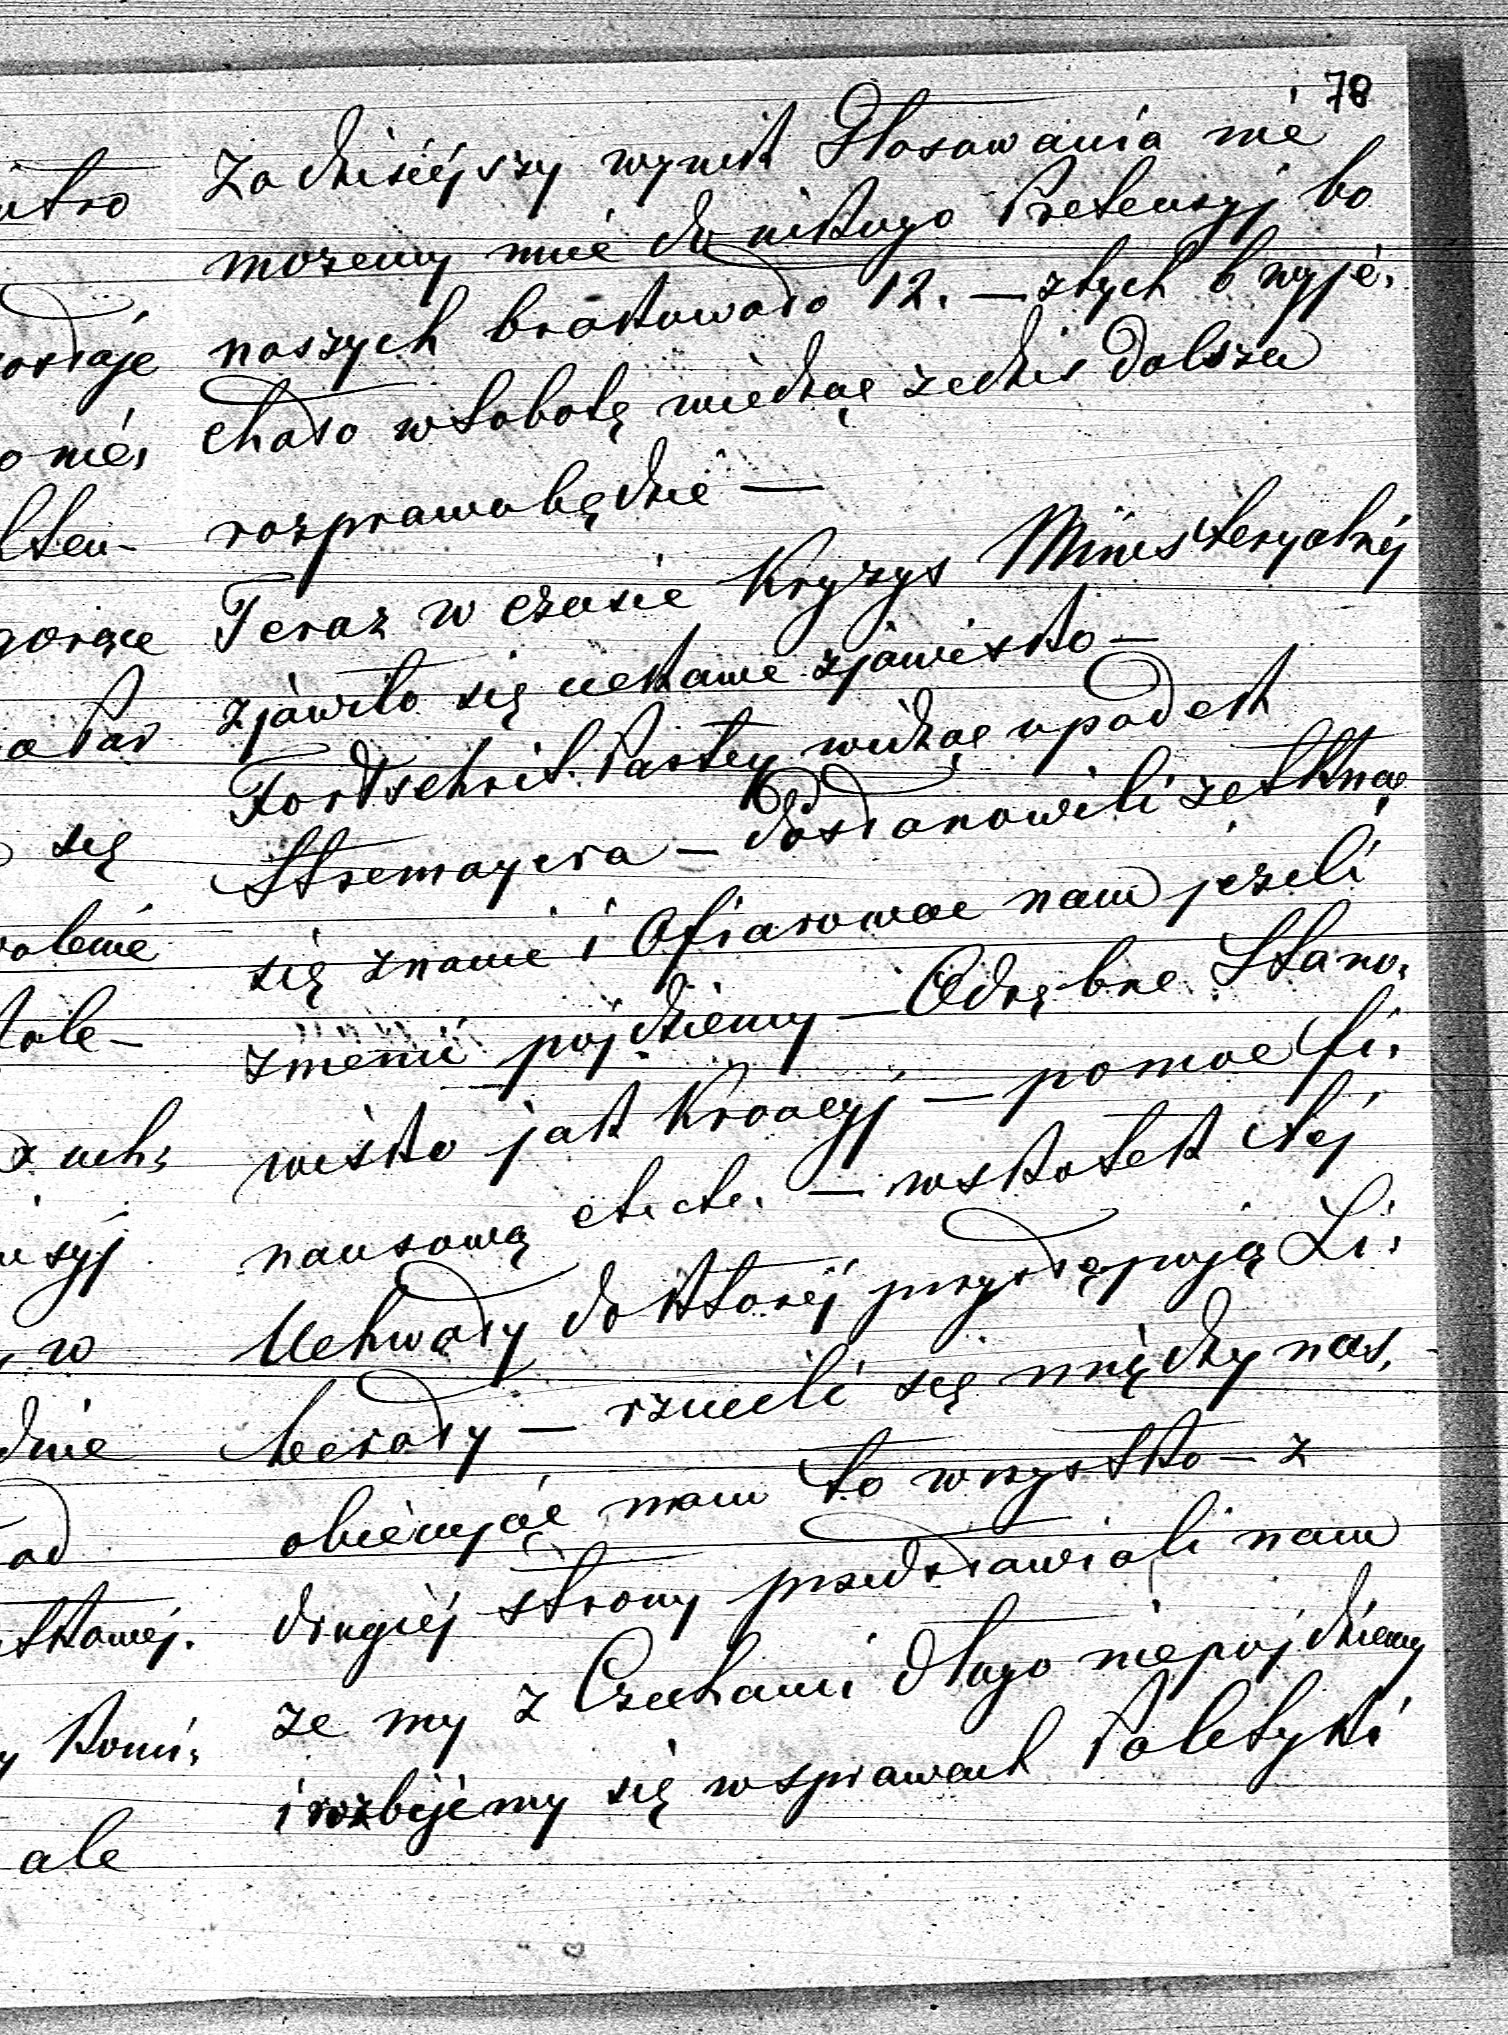 78
Za dzisiéjszy wynik Głosowania nié
mozemy mieé do nikugo Pretensyj bo
naszych brakowało 12. — z tych 6 wyjé,
chało w Sobotę wiedząc ze dzis dalsza
rozprawa będzie —
Teraz w czasie Kryzys Ministeryalnéj
zjawiło się ciekawe zjawisko —
Fortschrit. Partey widząc upadek
Stremayera — Postanowili zetknąć
się znami i Ofiarowac nam jezeli
zniemi pojdziemy — Odrębne Stano,
wisko jak Kroacyj — pomoc fi,
nansową etc etc. — wskutek téj
Uchwały do ktoréj przystępują Li,
berały — rzucili się między nas,
obiecując nam to wszystko — z
drugiéj strony przedstawiali nam
ze my z Czechami długo niepojdziemy
i rozbijemy się w sprawach Polityki
utro
o nié,
gorące
się
w
ale